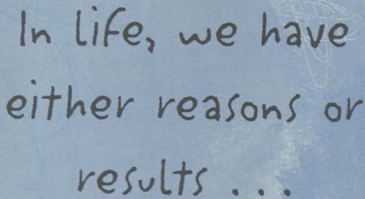 In life, we have
either reasons or
results . . .